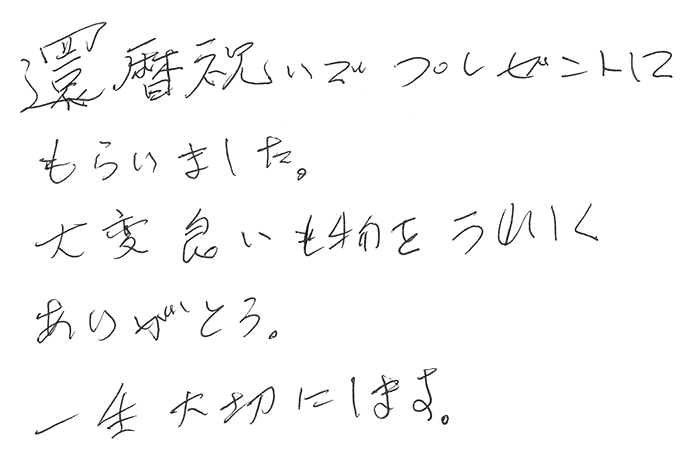 還暦祝いでプレゼントに
もらいました。
大変良い物をうれしく
ありがとう。
一生大切にします。